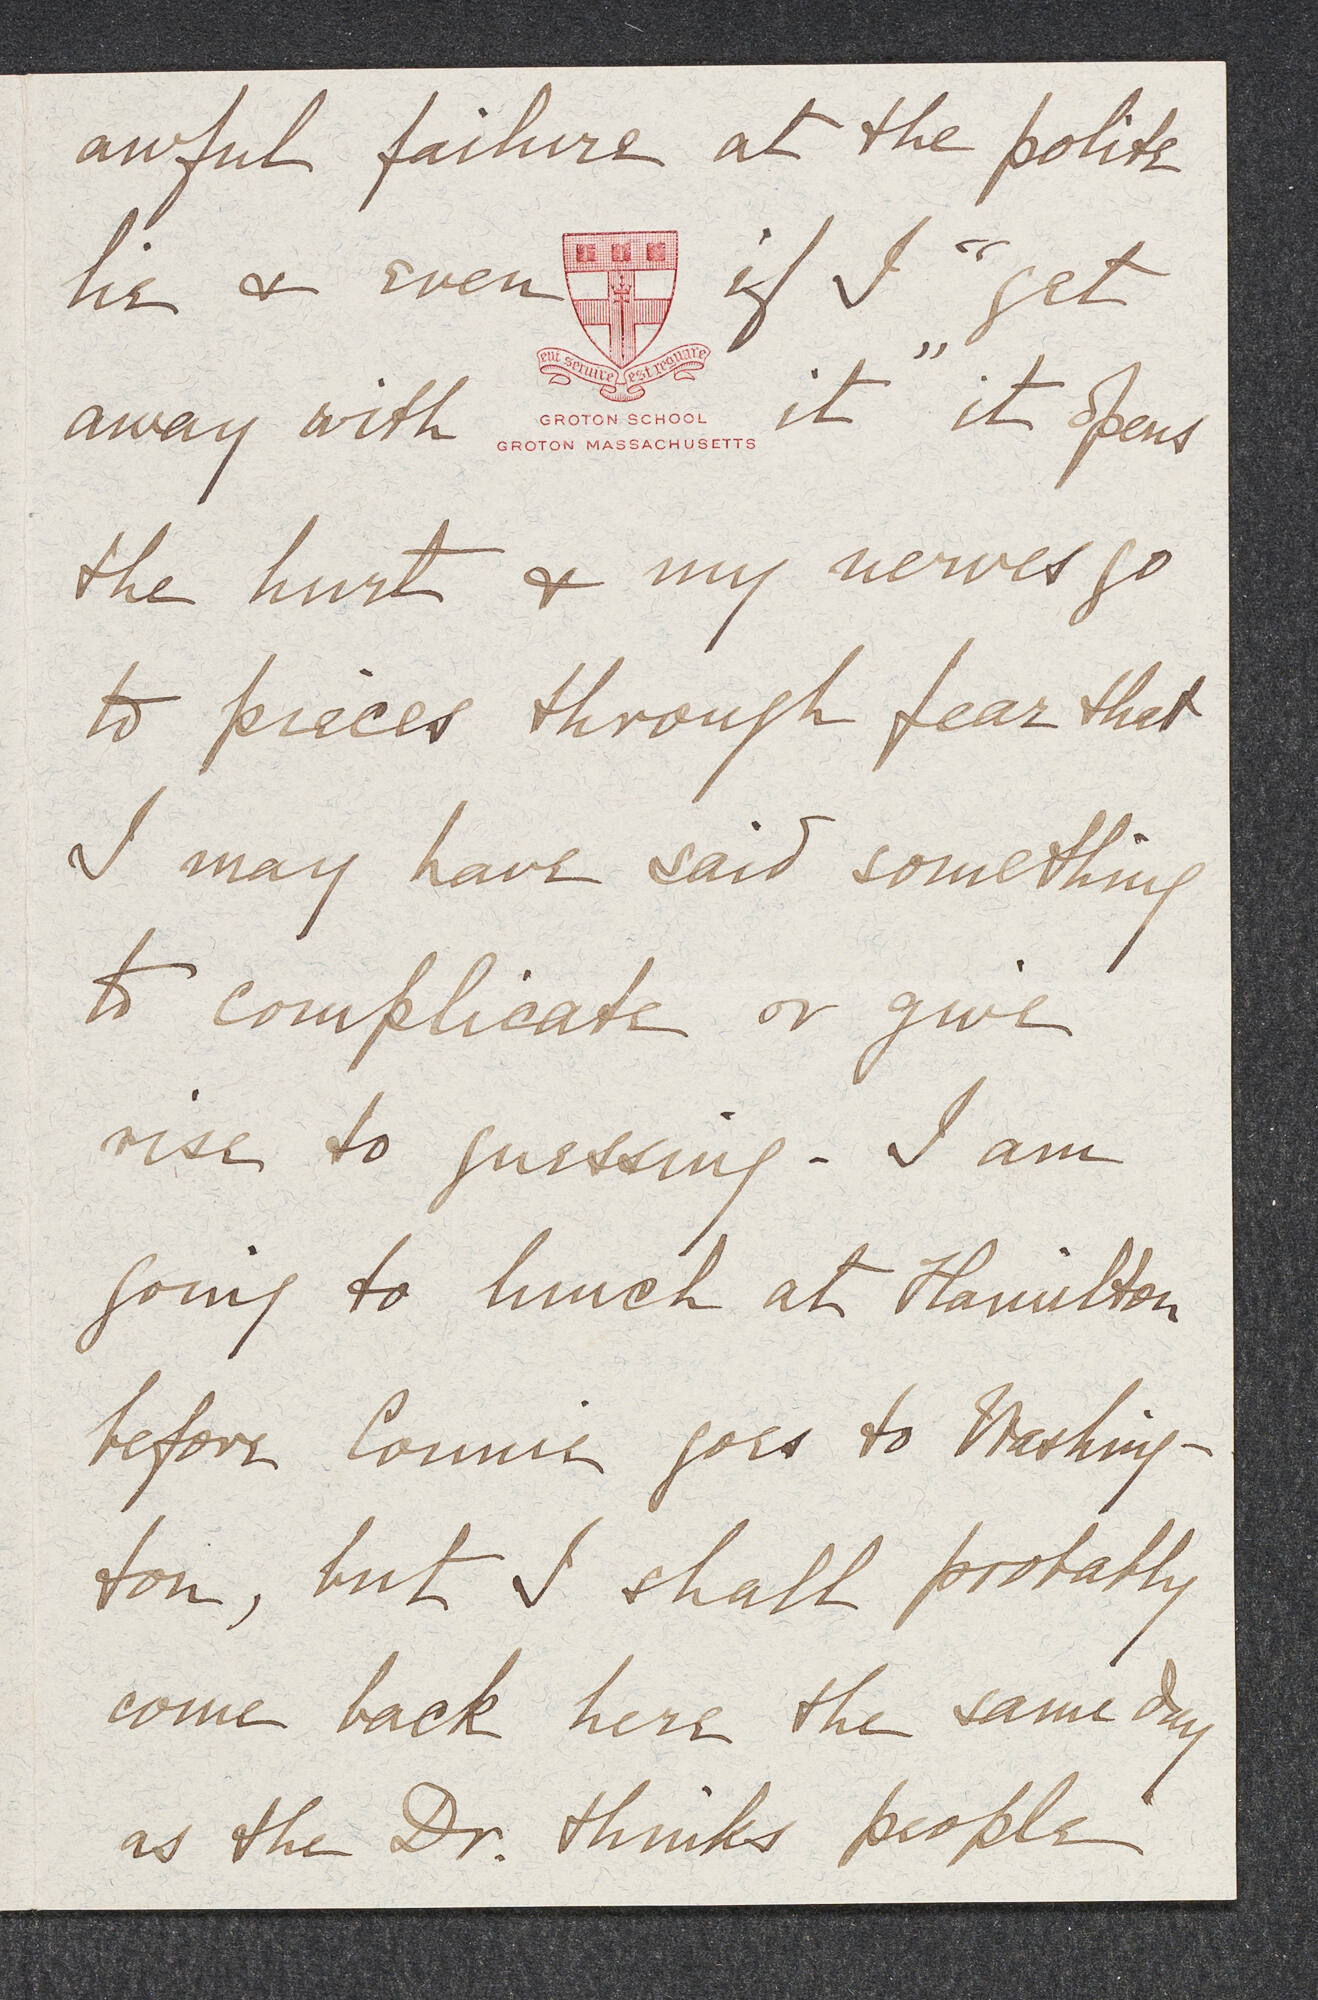 awful failure at the polite
lie & even if I "get
cui servire est regnare
away with it" it opens
GROTON SCHOOL
GROTON MASSACHUSETTS
the hurt & my nerves go
to pieces through fear that
I may have said something
to complicate or give
rise to guessing - I am
going to lunch at Hamilton
before Connie goes to Washing-
ton, but I shall probably
come back here the same day
as the Dr. thinks people